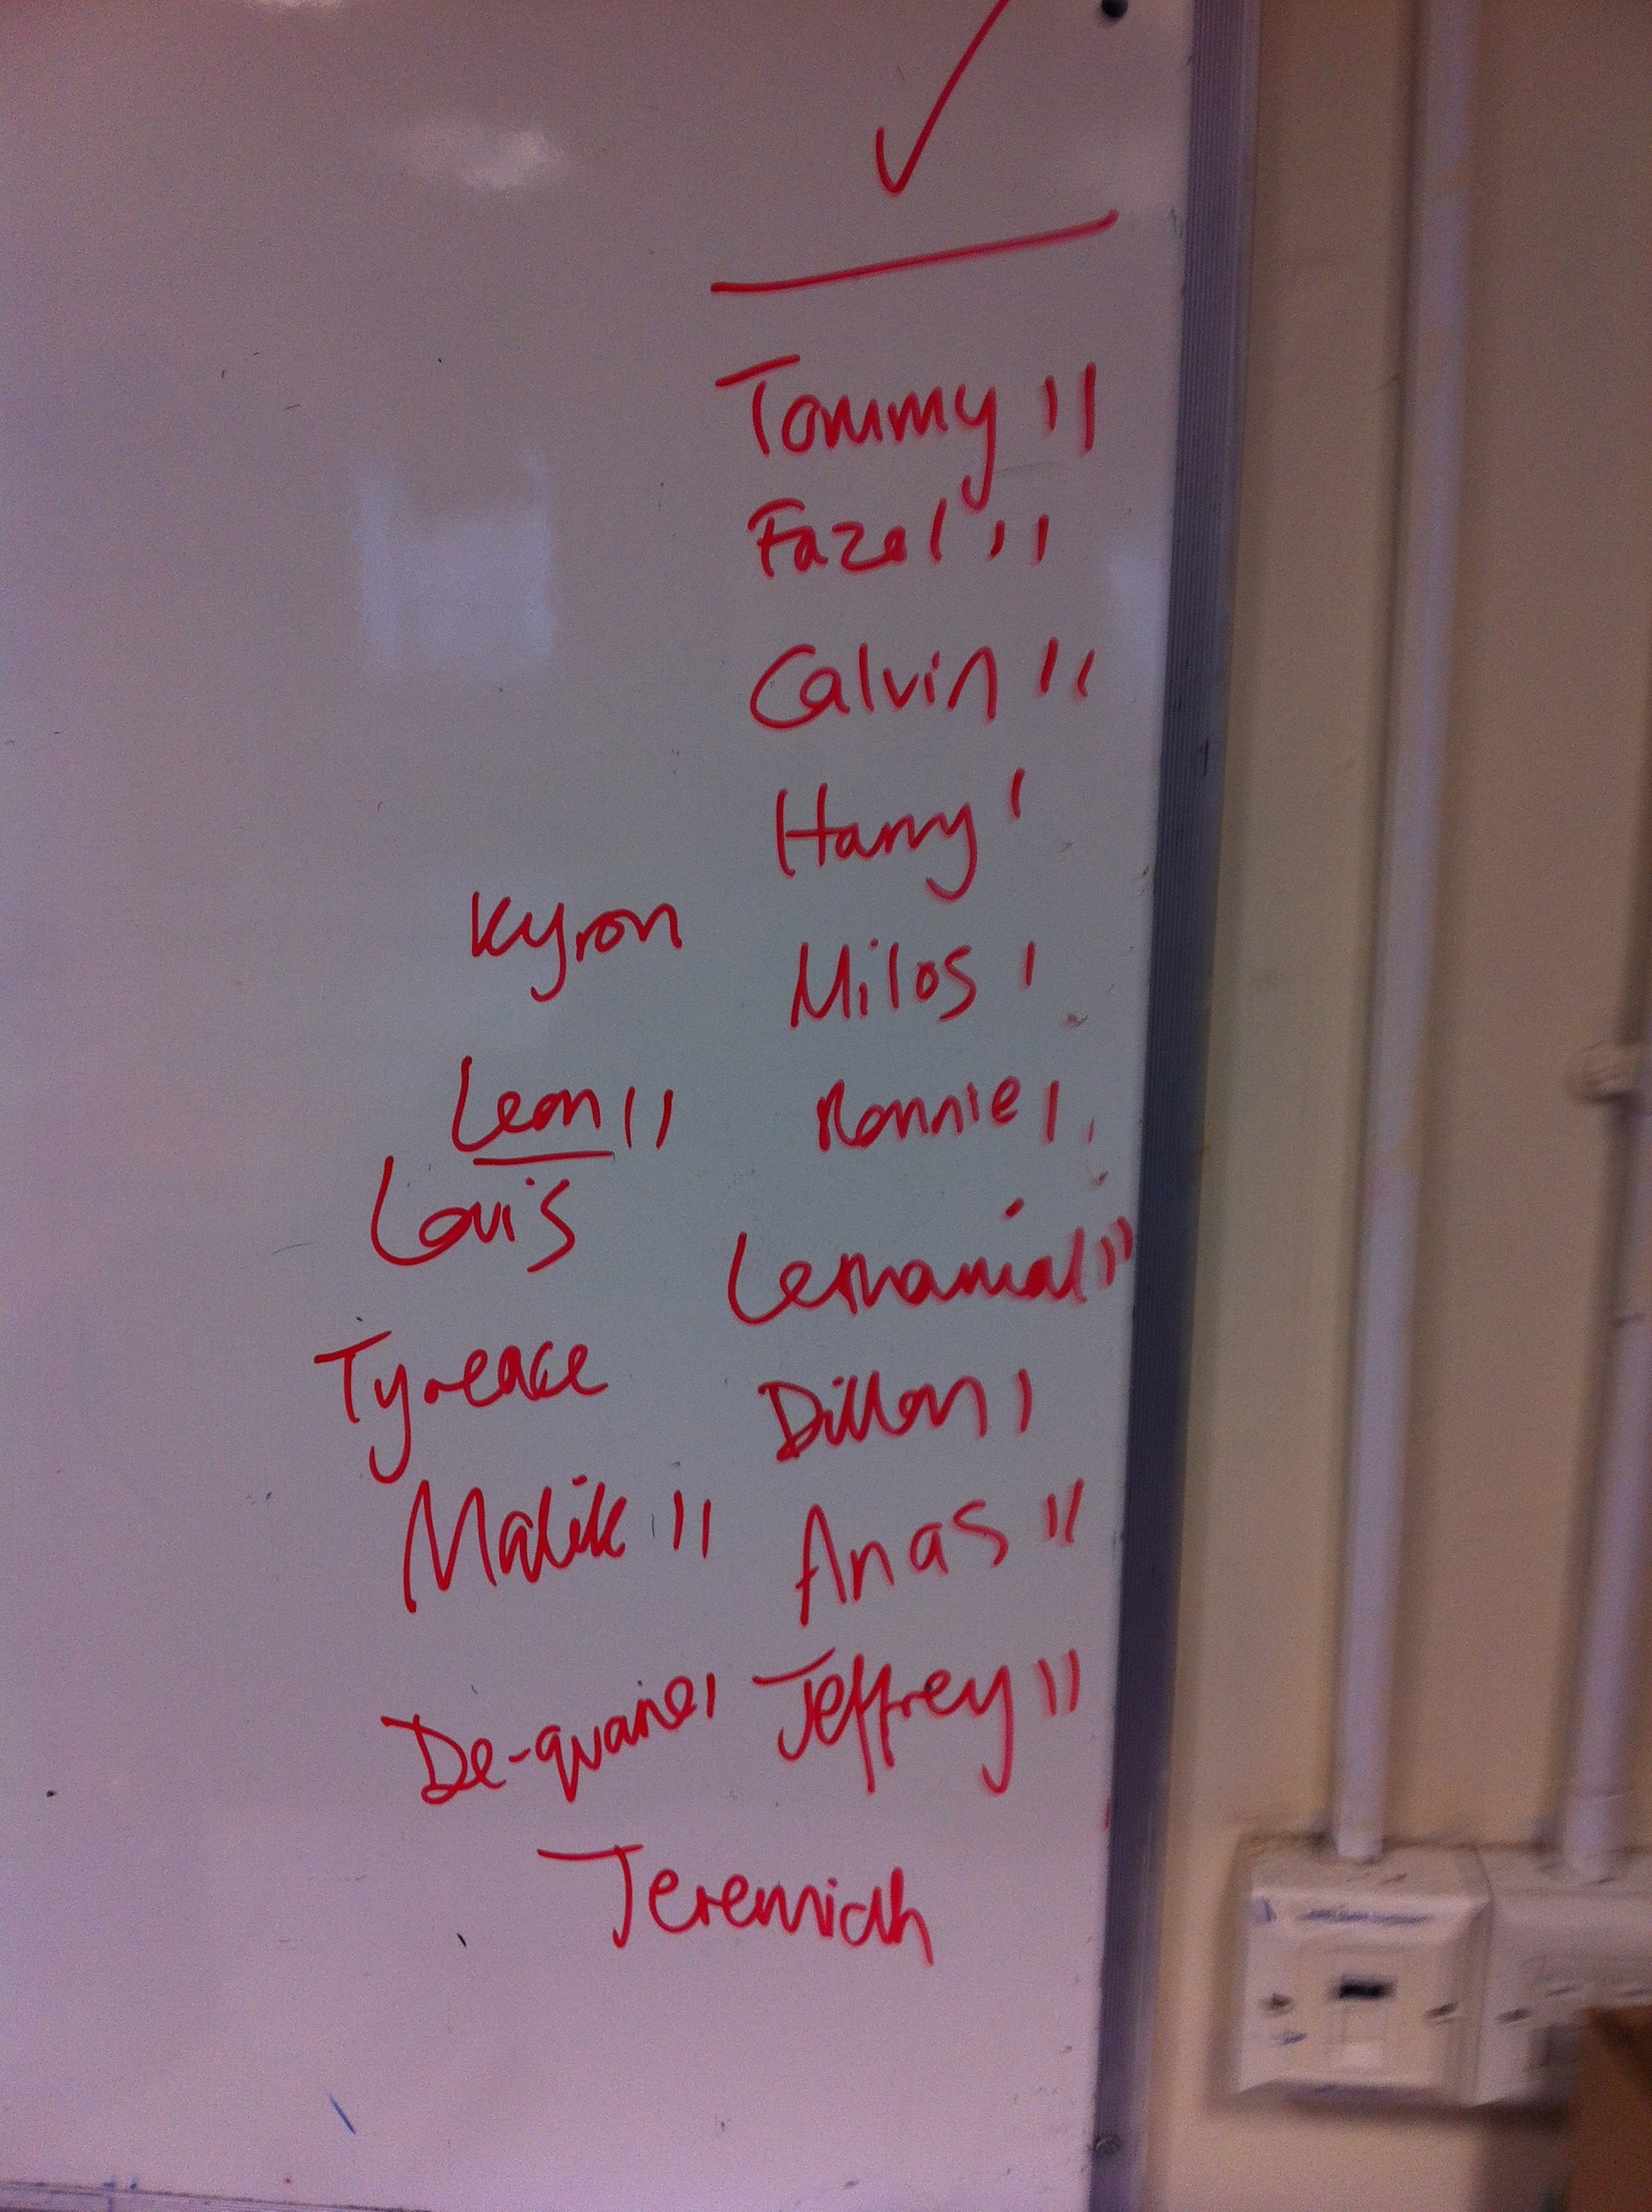 ✓
Tommy II
Fazel II
Calvin II
Harry I
Milos I
Ronnie I
Lemanial II
Dillon I
Anas II
Jeffrey II
Kyron
Leon II
Louis
Tyreace
Malik II
De-quaine I
Jeremiah